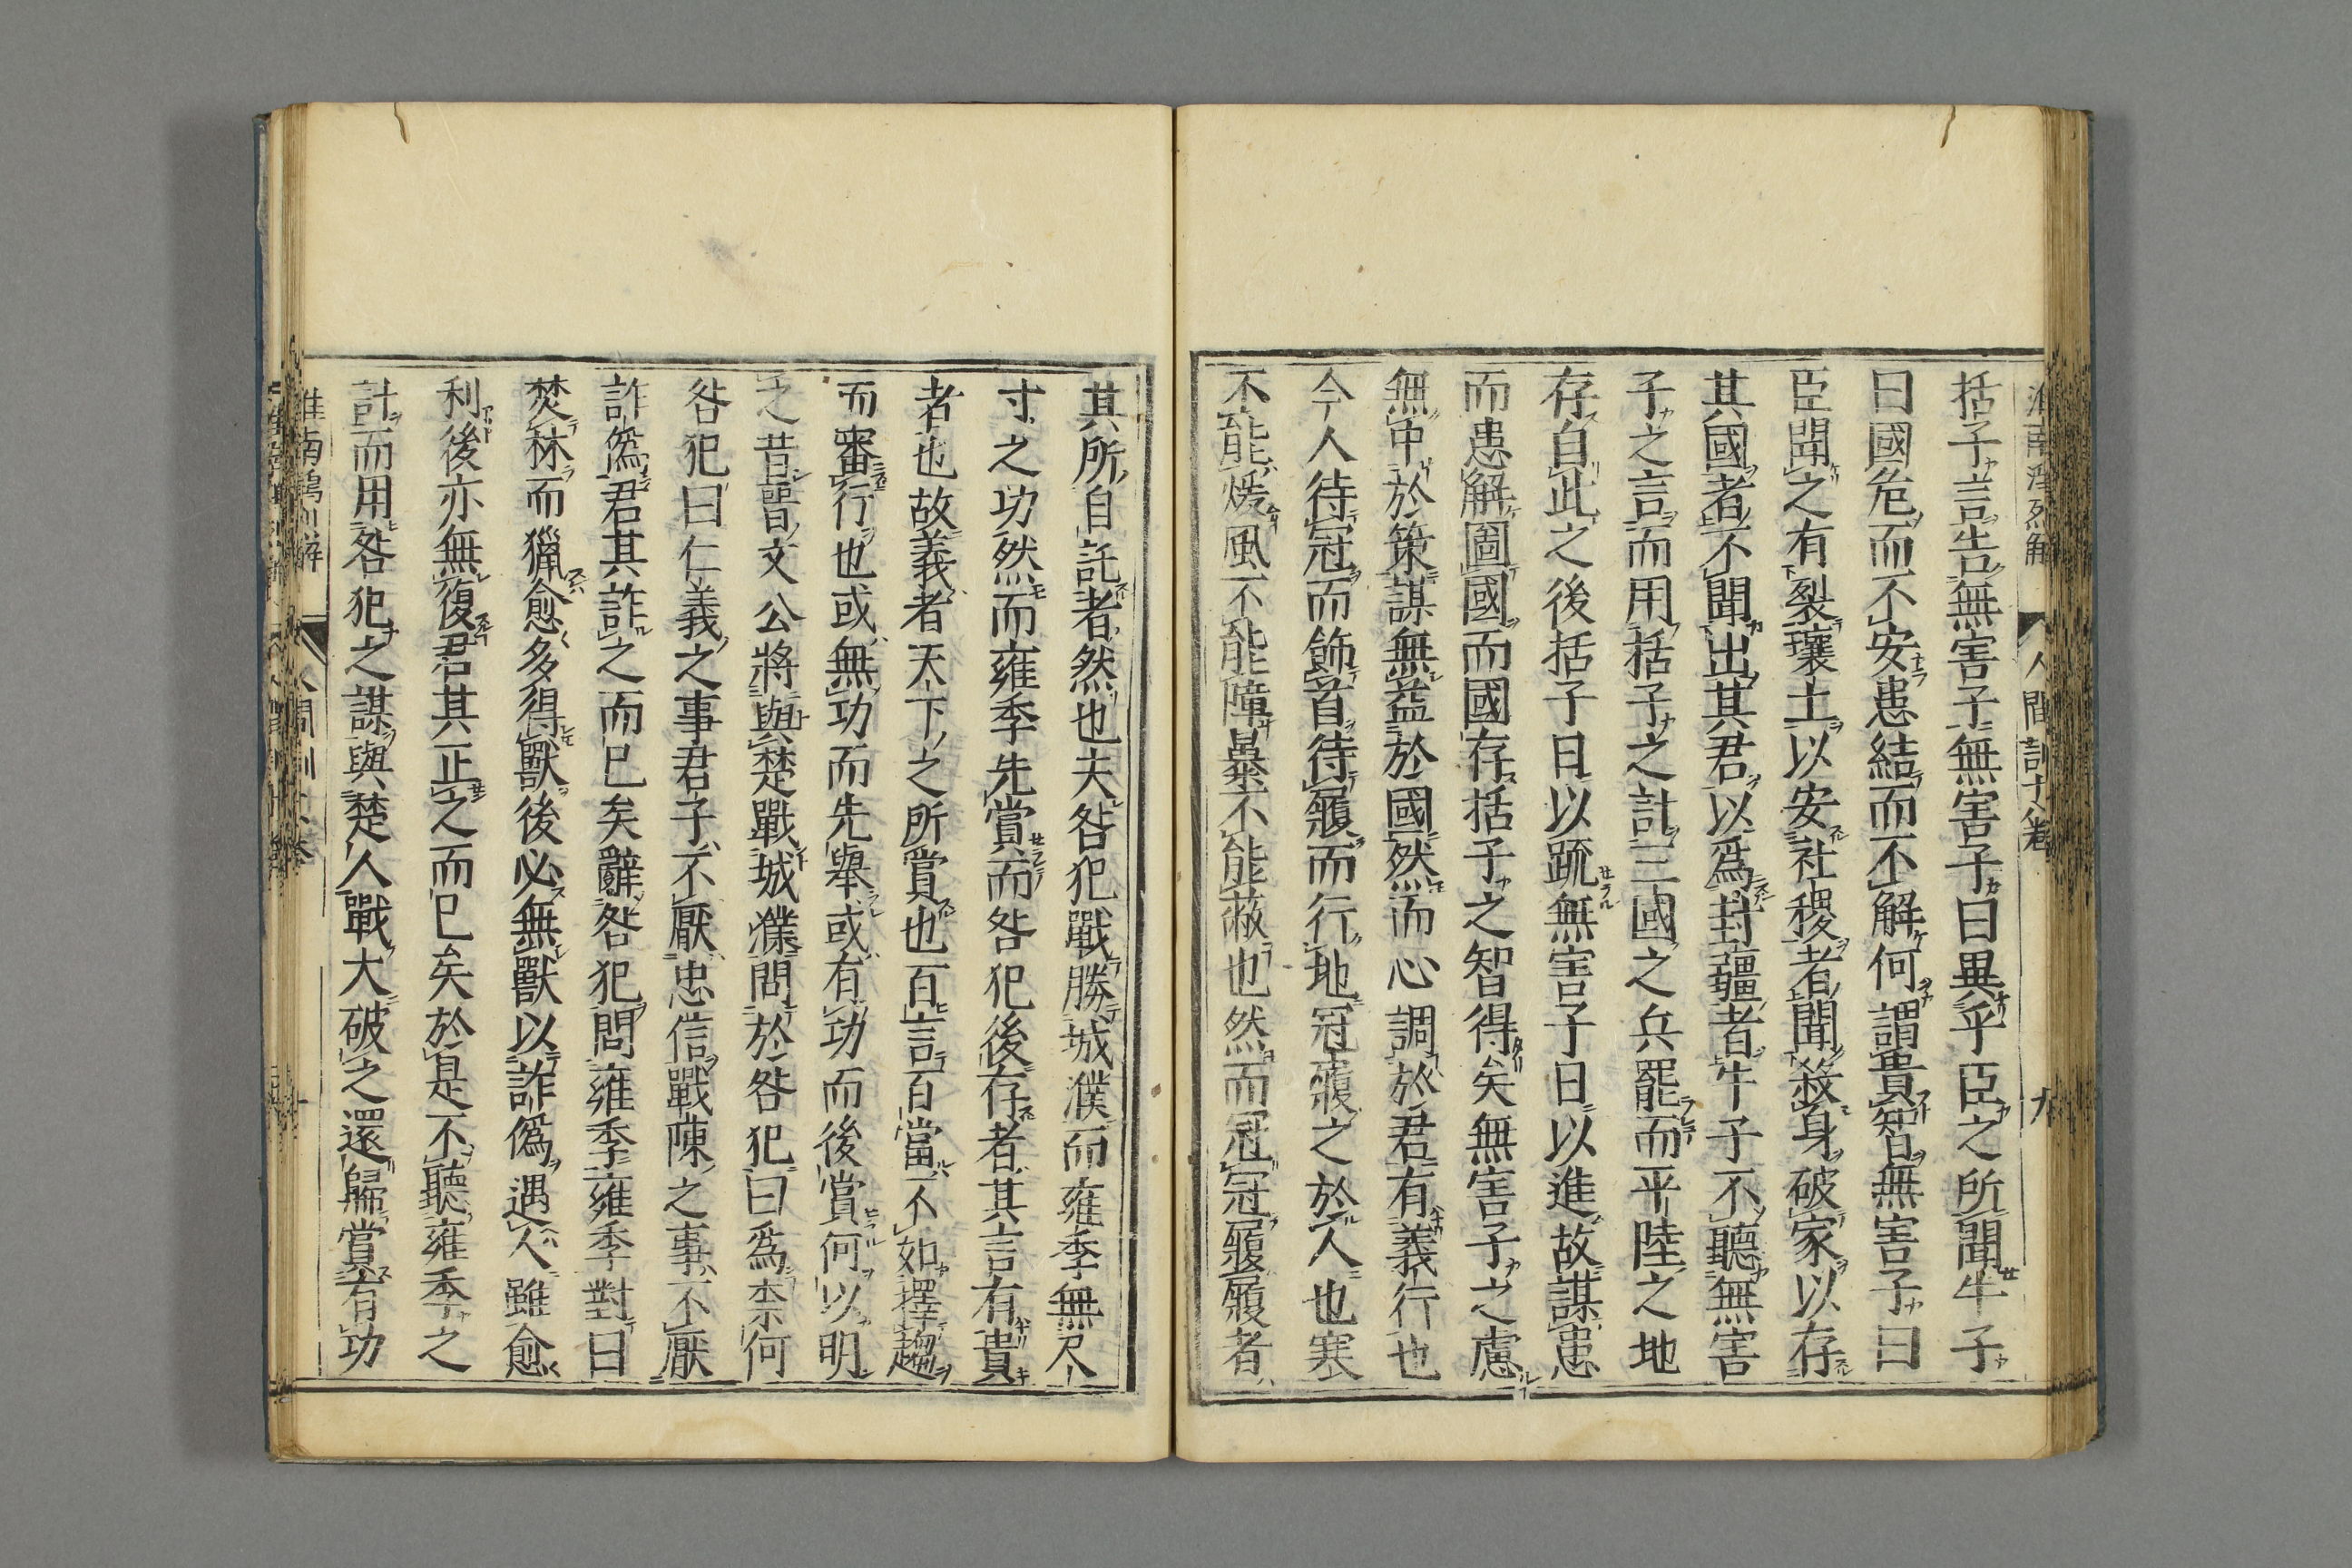 人間訓十八卷
九
括子言告無害子無害子曰異乎臣之所聞牛子
曰國危而不安患結而不解何謂貴智無害子曰
臣聞之有裂壤土以安社稷者聞殺身破家以存
其國者不聞出其君以爲封疆者牛子不聽無害
子之言而用括子之計三國之兵罷而平陸之地
存自此之後括子日以疏無害子日以進故謀患
而患解圖國而國存括子之智得矣無害子之慮
無中於策謀無益於國然而心調於君有義行也
今人待冠而飾首待履而行地冠履之於人也寒
不能煖風不能障暴不能蔽也然而冠冠履履者
其所自託者然也夫咎犯戰勝城濮而雍季無尺
寸之功然而雍季先賞而咎犯後存者其言有貴
者也故義者天下之所賞也百言百當不如擇趨
而審行也或無功而先舉或有功而後賞何以明
之昔晉文公將與楚戰城濮問於咎犯曰爲柰何
咎犯曰仁義之事君子不厭忠信戰陳之事不厭
詐僞君其詐之而已矣辭咎犯問雍季雍季對曰
焚林而獵愈多得獸後必無獸以詐僞遇人雖愈
利後亦無復君其正之而已矣於是不聽雍季之
計而用咎犯之謀與楚人戰大破之還歸賞有功